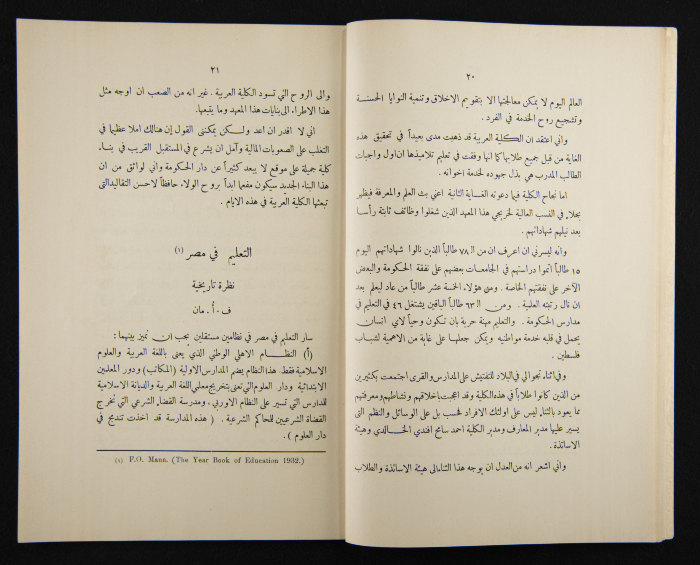 ٢٠
العالم اليوم لا يمكن معالجتها الا بتقويم الاخلاق وتنمية النوايا الحسنة
وتشجيع روح الخدمة في الفرد .
واني اعتقد ان الكلية العربية قد ذهبت مدى بعيداً في تحقيق هذه
الغاية من قبل جميع طلابها كما انها وفقت في تعليم تلاميذها ان اول واجبات
الطالب المدرب هي بذل جهوده لخدمة اخوانه .
اما نجاح الكلية فيما دعوته الغاية الثانية اعني بث العلم والمعرفة فيظهر
بجلاء في النسب العالية لخريجي هذا المعهد الذين شغلوا وظائف ثابتة رأساً
بعد نيلهم شهاداتهم .
وانه ليسرني ان اعرف ان من الـ ٧٨ طالباً الذين نالوا شهاداتهم اليوم
١٥ طالباً اتموا دراستهم في الجامعات بعضهم على نفقة الحكومة والبعض
الآخر على نفقتهم الخاصة . ومن هؤلاء الخمسة عشر طالباً من عاد ليعلم بعد
ان نال رتبته العلمية . ومن الـ ٦٣ طالباً الباقين يشتغل ٤٦ في التعليم في
مدارس الحكومة . والتعليم مهنة حرية بان تكون وحياً لاي انسان
يحمل في قلبه خدمة مواطنيه ويمكن جعلها على غاية من الاهمية لشباب
فلسطين .
وفي اثناء تجوالي في البلاد للتفتيش على المدارس والقرى اجتمعت بكثيرين
من الذين كانوا طلاباً في هذه الكلية وقد اعجبت باخلاقهم ونشاطهم ومعرفتهم
مما يعود بالثناء ليس على اولئك الافراد فحسب بل على الوسائل والنظم التي
يسير عليها مدير المعارف ومدير الكلية احمد سامح افندي الخالدي وهيئة
الاساتذة .
واني اشعر انه من العدل ان يوجه هذا الثناء الى هيئة الاساتذة والطلاب
٢١
والى الروح التي تسود الكلية العربية . غير انه من الصعب ان اوجه مثل
هذا الاطراء الى بنايات هذا المعهد وما يتبعها .
اني لا اقدر ان اعد ولكن يمكنني القول إن هنالك املا عظيما في
التغلب على الصعوبات المالية وآمل ان يشرع في المستقبل القريب في بناء
كلية جميلة على موقع لا يبعد كثيراً عن دار الحكومة واني لواثق من ان
هذا البناء الجديد سيكون مفعما ابداً بروح الولاء حافظاً لاحسن التقاليد التي
تبعثها الكلية العربية في هذه الايام .
التعليم في مصر (١)
نظرة تاريخية
ف . أ . مان
سار التعليم في مصر في نظامين مستقلين يجب ان نميز بينهما :
(أ) النظام الاهلي الوطني الذي يعنى باللغة العربية والعلوم
الاسلامية فقط. هذا النظام يضم المدارس الاولية (المكاتب) ودور المعلمين
الابتدائية ودار العلوم التي تعنى بتخريج معلمي اللغة العربية والديانة الاسلامية
للمدارس التي تسير على النظام الاوربي ، ومدرسة القضاء الشرعي التي تخرج
القضاة الشرعيين للمحاكم الشرعية . ( هذه المدارسة قد اخذت تندمج في
دار العلوم ) .
(١) F.O. Mann. (The Year Book of Education 1932.)